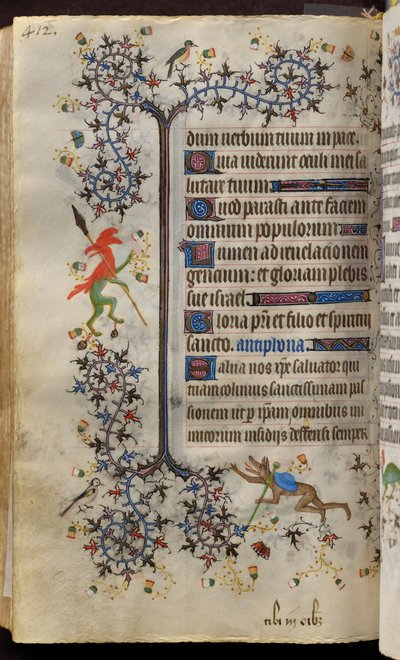 412.
dum uerbum tuum in pace.
Quia uiderunt oculi mei sa
lutare tuum
Quod parasti ante faciem
omnium populorum
Lumen ad reuelacionem
gencium: et gloriam plebis
sue israel
Gloria pri et filio et spiritui
sancto. antiphona.
Salua nos xpe saluator qui
tuam colimus sanctissimam pas
sionem ut per ipsam omnibus in
imicorum insidijs deffensi semper
tibi in oib